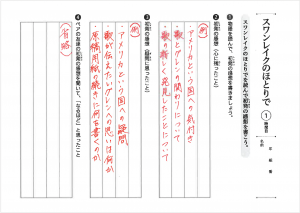 スワンレイクのほとりで
①
学習日
年 組 番
名前
スワンレイクのほとりでを読んで初発の感想を書こう。
❶全文を読んで、初発の感想を書きましょう。
❷初発の感想（心に残ったこと）
（例）
・アメリカという国への気付き
・歌とグレンの関わりについて
・歌の新しく発見したことについて
❸初発の感想（疑問に思ったこと）
（例）
・アメリカという国への疑問
・歌が伝えたいグレンへの思いは何か
・原稿用紙の続きに何を書くのか
❹ペアの友達の初発の感想を聞いて、「なるほど」と思ったこと
（省略）